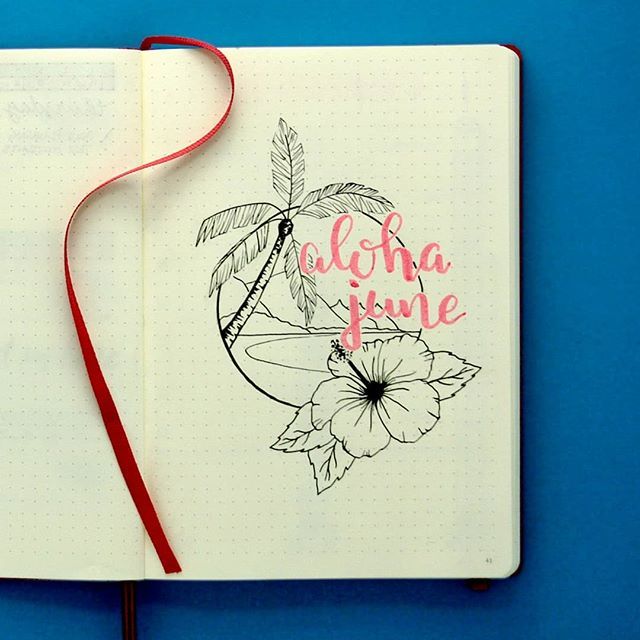 aloha
june